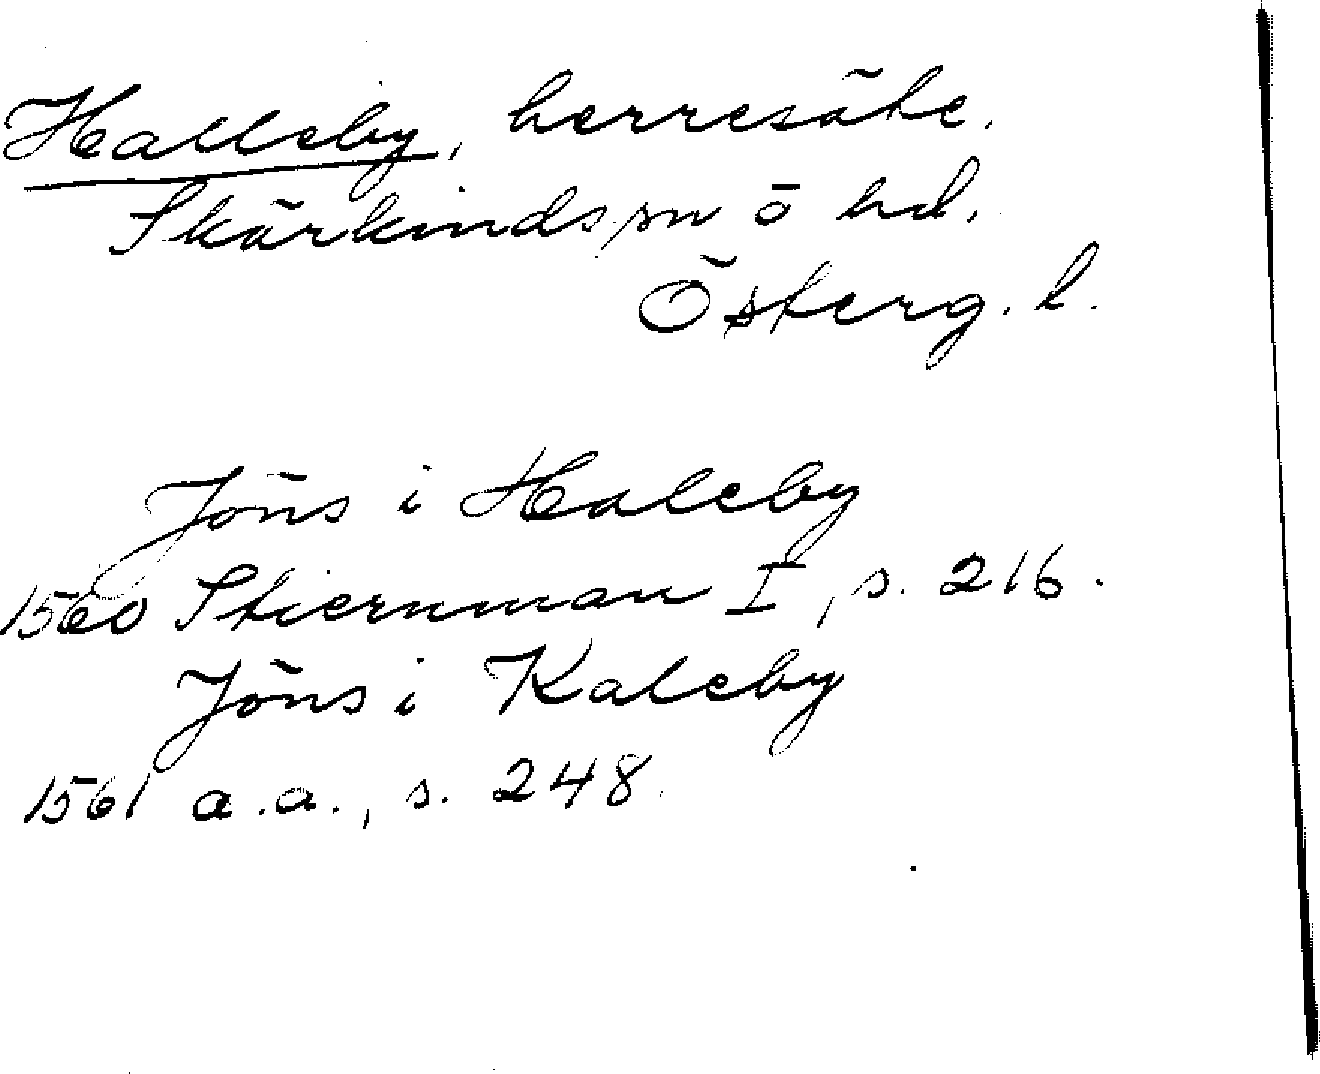 Halleby, herresäte.
Skärkinds sn o hd.
Österg. l.
Jöns i Haleby
1560 Stiernman I, s. 216.
Jöns i Kaleby
1561 a.a., s. 248.